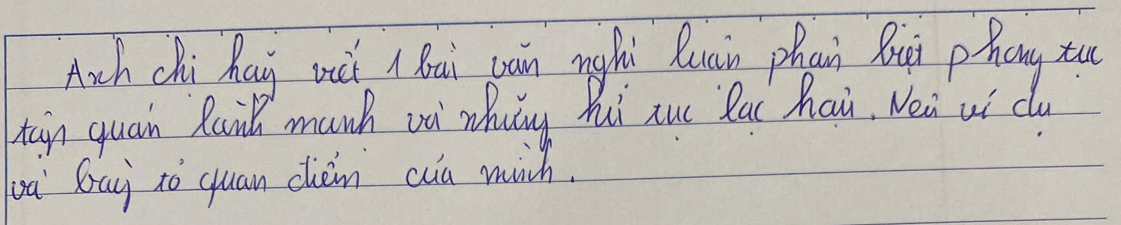 Anh chi hãy viết 1 bài văn nghị luận phân biệt phong tục
tập quán lành mạnh và những hủ tục lạc hậu. Nêu ví dụ
và bày tỏ quan điểm của mình.